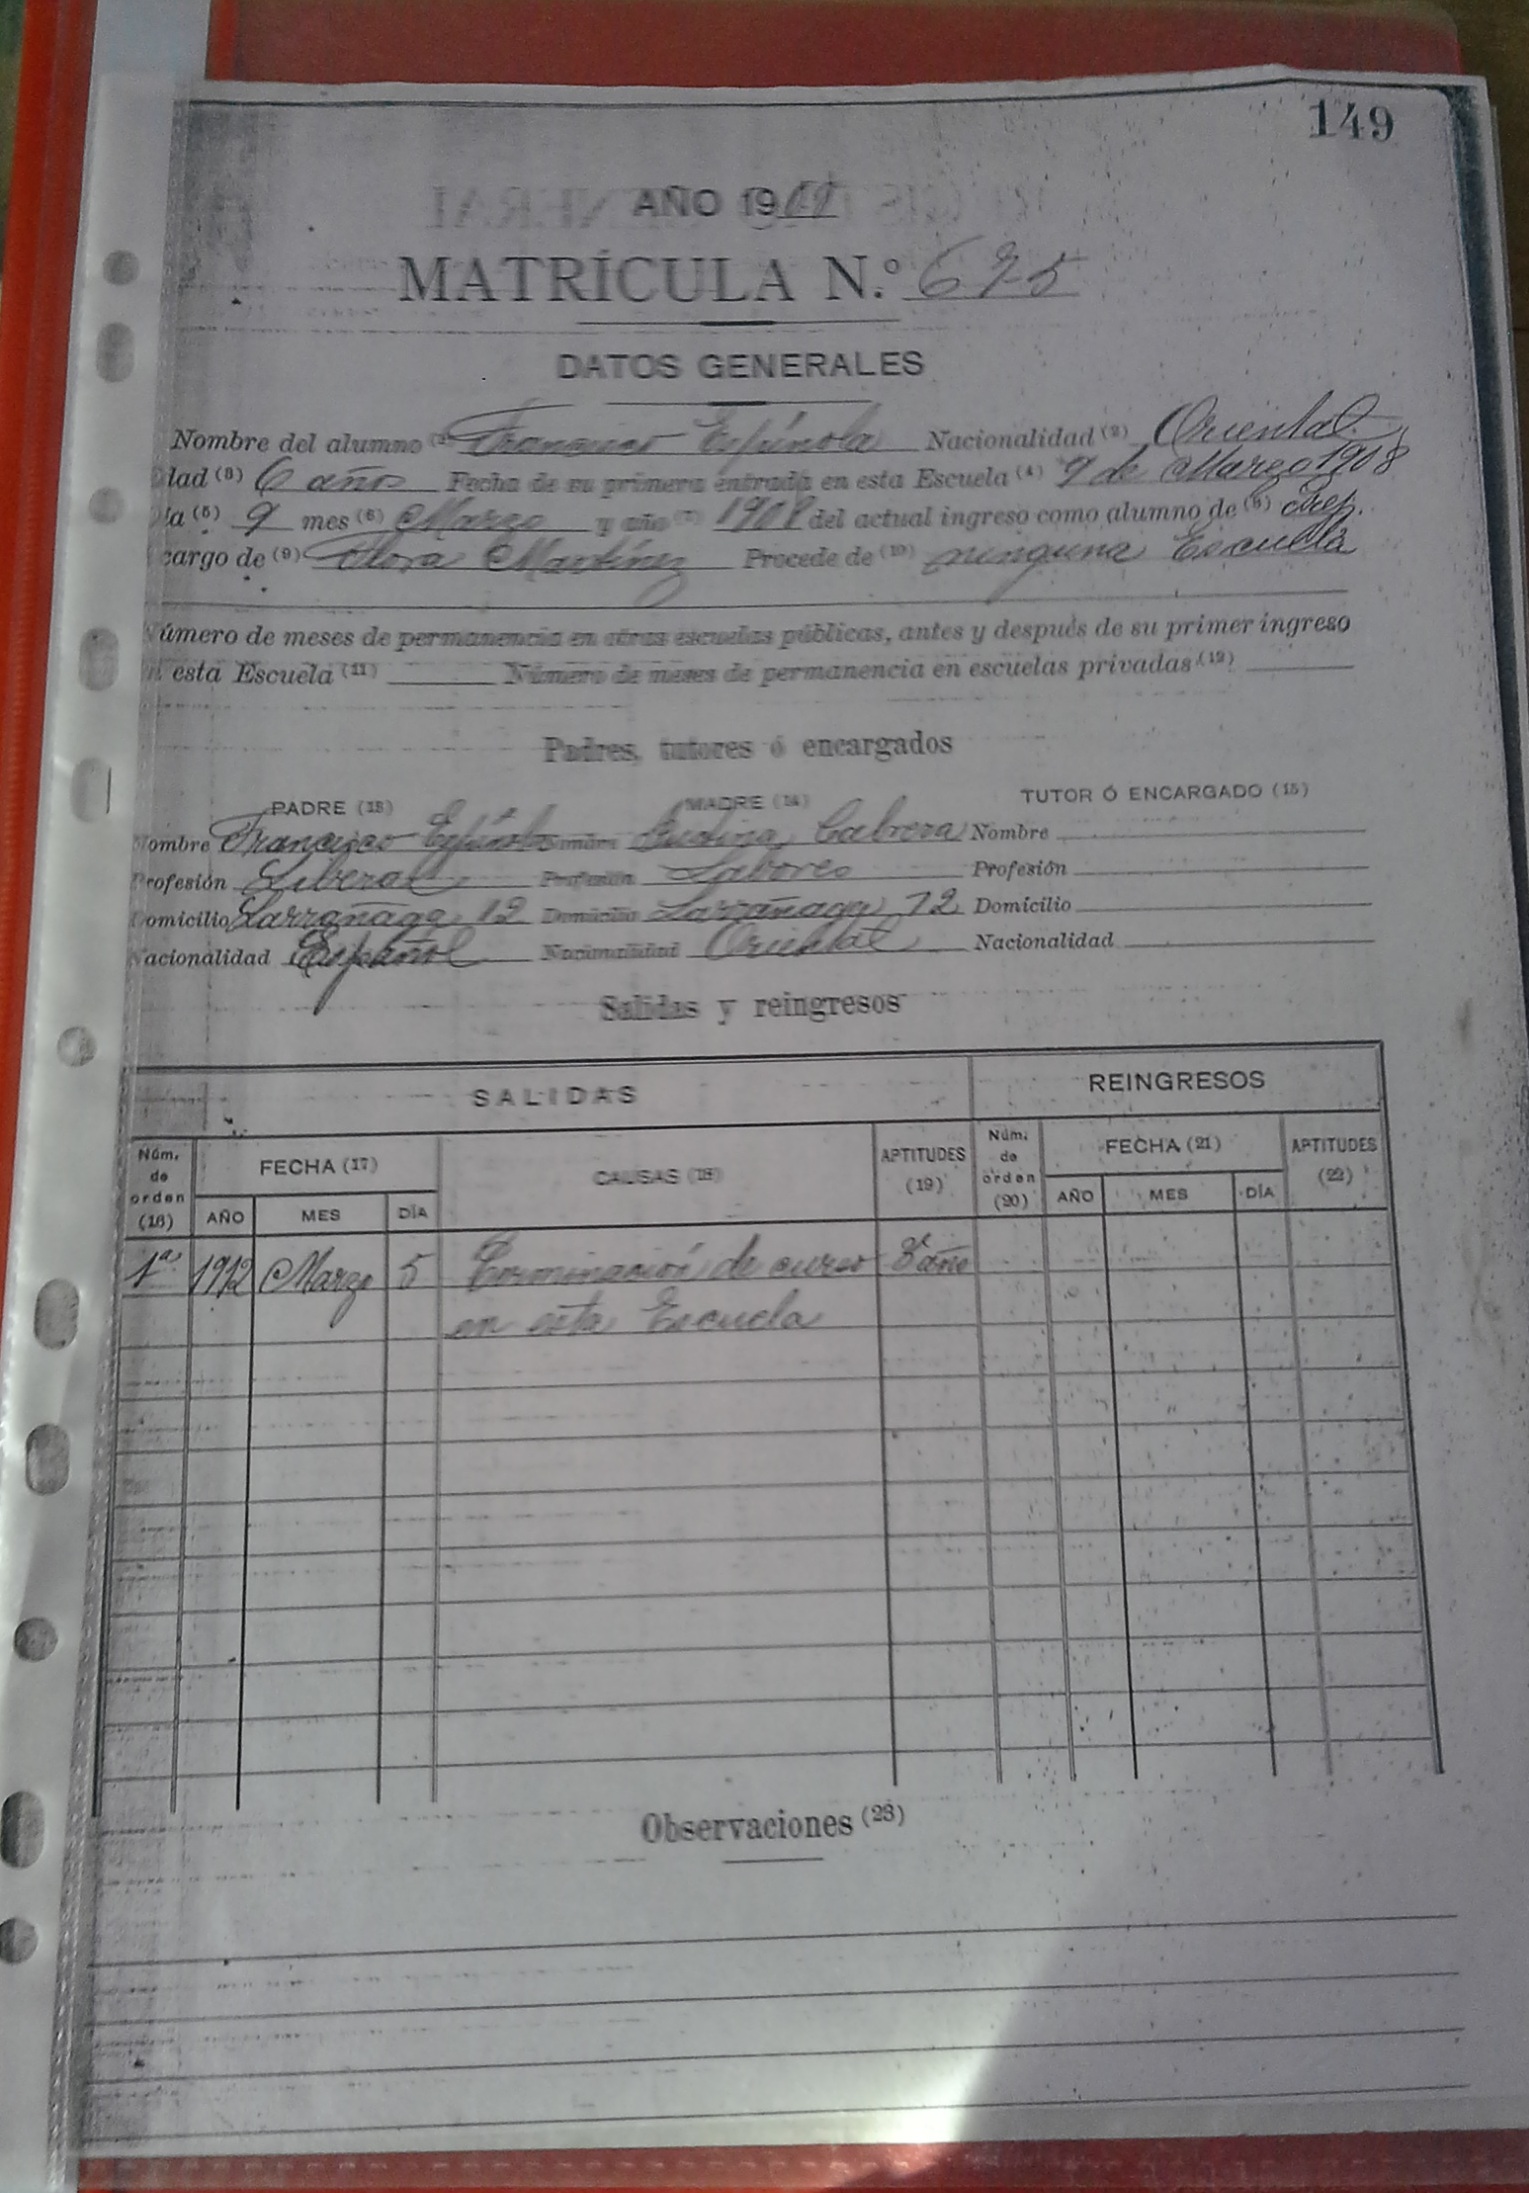 149
AÑO 1908
MATRÍCULA N.º 675
DATOS GENERALES
Nombre del alumno Francisco Espínola Nacionalidad (2) Oriental
dad (3) 6 años Fecha de su primera entrada en esta Escuela (4) 9 de Marzo 1908
ía (5) 9 mes (6) Marzo y año (7) 1908 del actual ingreso como alumno de (8)
cargo de (9) Flora Martínez Procede de (10) ninguna Escuela
Número de meses de permanencia en otras escuelas públicas, antes y después de su primer ingreso
n esta Escuela (11) Número de meses de permanencia en escuelas privadas (12)
Padres, tutores ó encargados
PADRE (13) MADRE (14) TUTOR Ó ENCARGADO (15)
Nombre Francisco Espínola Nombre Cabrera Nombre
Profesión Liberal Profesión Labores Profesión
Domicilio Larrañaga 12 Domicilio Larrañaga 12 Domicilio
Nacionalidad Español Nacionalidad Oriental Nacionalidad
Salidas y reingresos
SALIDAS REINGRESOS
Núm. de orden (16) FECHA (17) CAUSAS (18) APTITUDES (19) Núm. de orden (20) FECHA (21) APTITUDES (22)
AÑO MES DÍA AÑO MES DÍA
1ª 1912 Marzo 5 Terminación de curso 3er año
en esta Escuela
Observaciones (23)